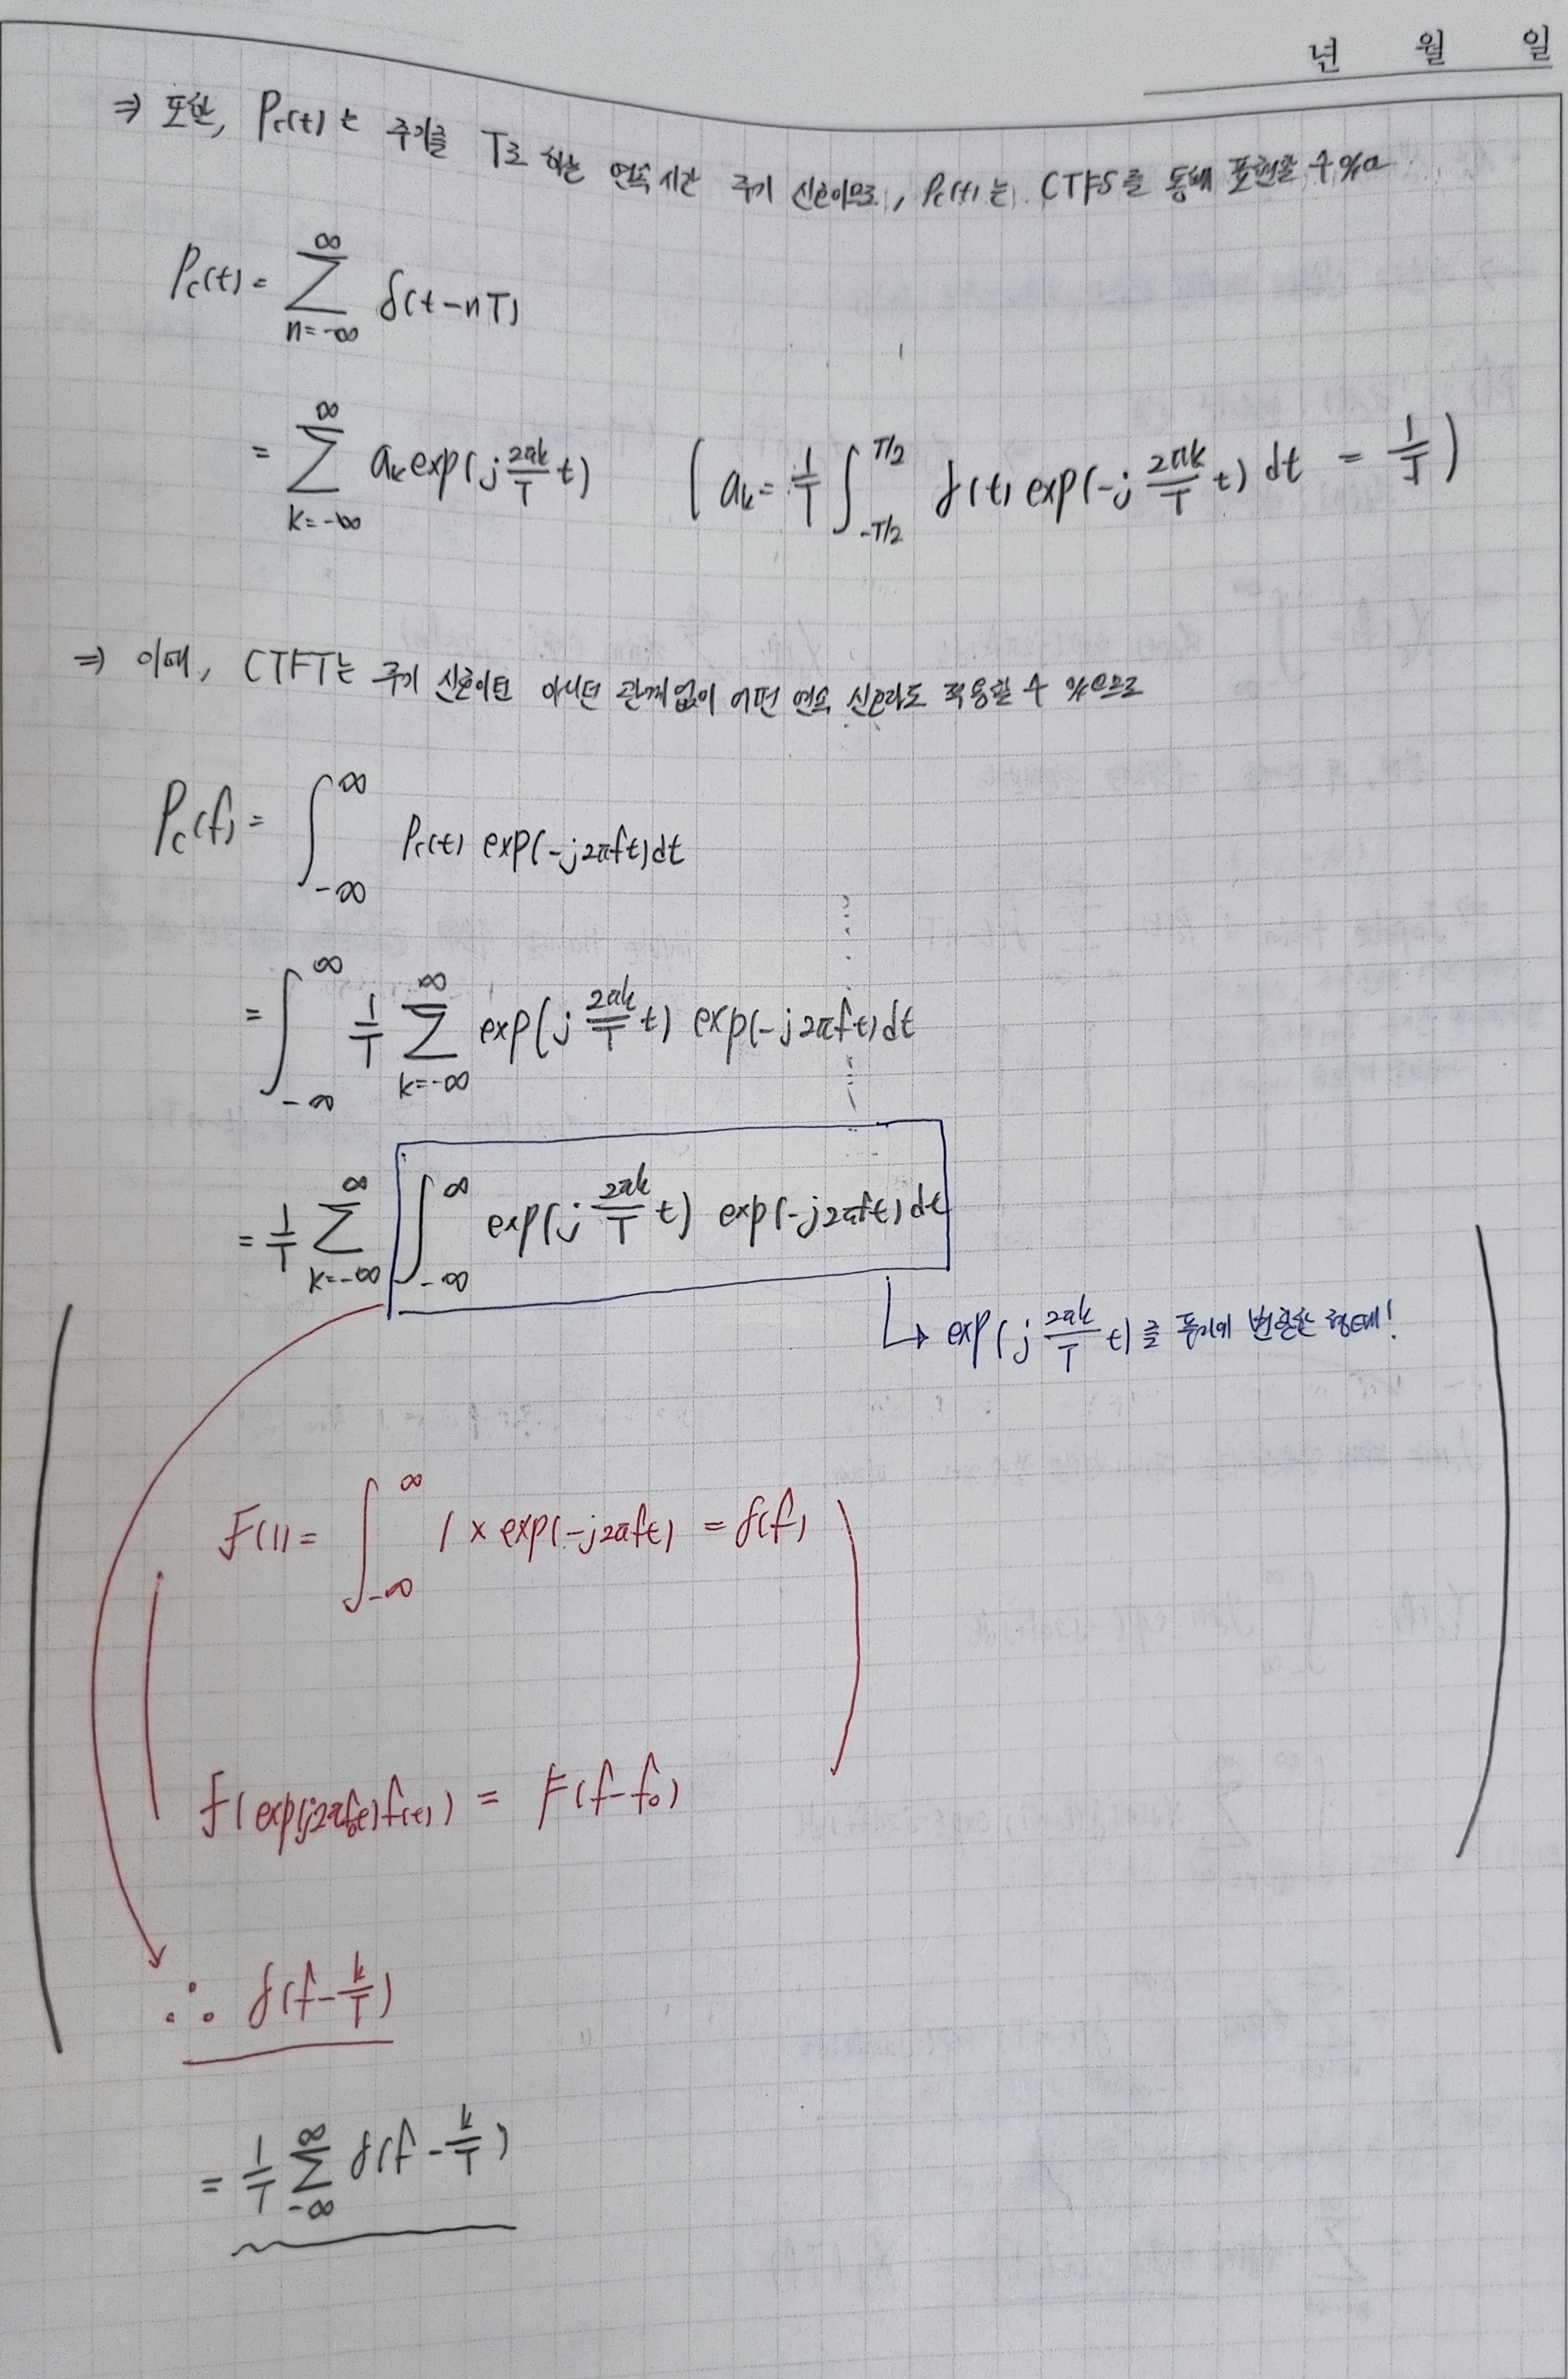 년 월 일
⇒ 또한, Pc(t)는 주기를 T로 하는 연속시간 주기 신호이므로, Pc(t)는 CTFS를 통해 표현할 수 있고
Pc(t) = ∑_{n=-∞}^{∞} δ(t-nT)
= ∑_{k=-∞}^{∞} a_k exp(j 2πk/T t) ( a_k = 1/T ∫_{-T/2}^{T/2} δ(t) exp(-j 2πk/T t) dt = 1/T )
⇒ 이때, CTFT는 주기 신호이던 아니던 관계없이 어떤 연속 신호라도 적용할 수 있으므로
Pc(f) = ∫_{-∞}^{∞} Pc(t) exp(-j2πft)dt
= ∫_{-∞}^{∞} 1/T ∑_{k=-∞}^{∞} exp(j 2πk/T t) exp(-j2πft)dt
= 1/T ∑_{k=-∞}^{∞} ∫_{-∞}^{∞} exp(j 2πk/T t) exp(-j2πft)dt
↳ exp(j 2πk/T t)를 푸리에 변환한 형태!
F(1) = ∫_{-∞}^{∞} 1 × exp(-j2πft) = δ(f)
F(exp(j2πf₀t)f(t)) = F(f-f₀)
∴ δ(f - k/T)
= 1/T ∑_{-∞}^{∞} δ(f - k/T)